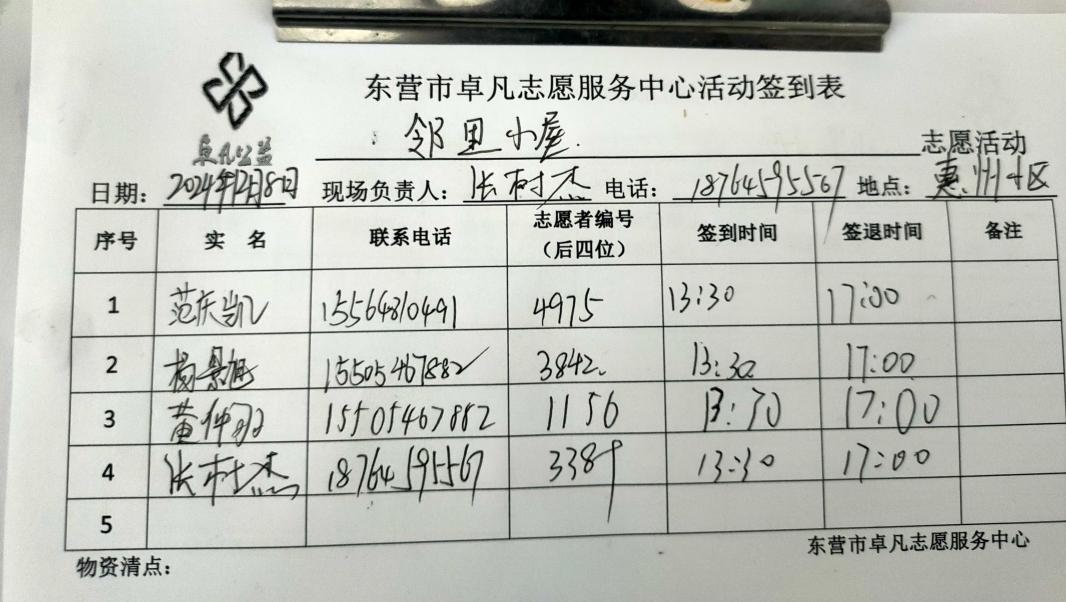 东营市卓凡志愿服务中心活动签到表
卓凡公益
邻里小屋 志愿活动
日期：2024年12月8日 现场负责人：张树杰 电话：18764595567 地点：惠州小区
序号 实 名 联系电话 志愿者编号（后四位） 签到时间 签退时间 备注
1 范庆凯 15564810491 4975 13:30 17:00
2 杨景 15505467882 3842 13:30 17:00
3 黄仲 15505467882 1156 13:30 17:00
4 张树杰 18764595567 3389 13:30 17:00
5
东营市卓凡志愿服务中心
物资清点：